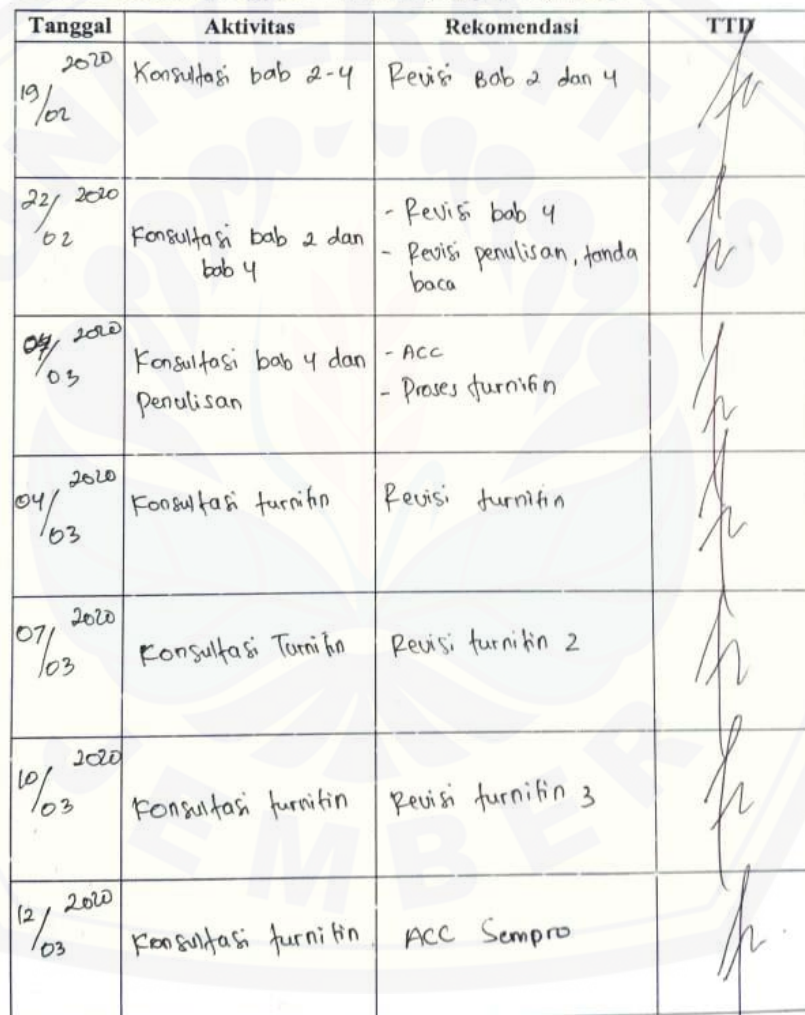 Tanggal Aktivitas Rekomendasi TTD
19/02 2020 Konsultasi bab 2-4 Revisi Bab 2 dan 4
22/02 2020 Konsultasi bab 2 dan bab 4 - Revisi bab 4
- Revisi penulisan, tanda baca
03 2020 Konsultasi bab 4 dan penulisan - ACC
- Proses turnitin
04/03 2020 Konsultasi turnitin Revisi turnitin
07/03 2020 Konsultasi Turnitin Revisi turnitin 2
10/03 2020 Konsultasi turnitin Revisi turnitin 3
12/03 2020 Konsultasi turnitin ACC Sempro
UNIVERSITAS
JEMBER